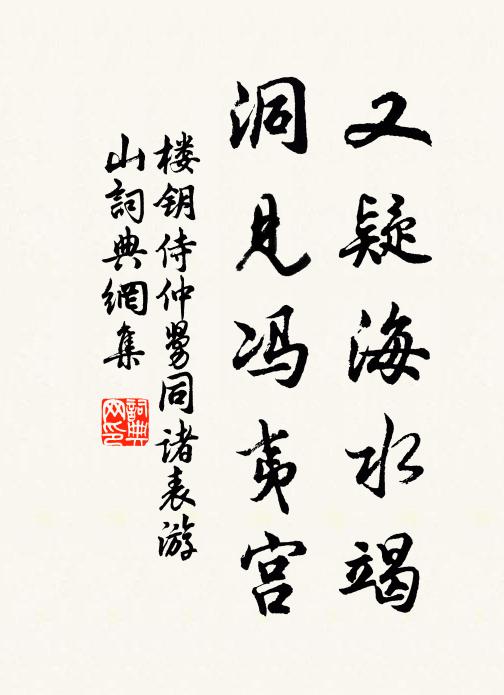 又疑海水竭
洞见冯夷宫
楼钥侍仲舅同诸表游
山詞典網集
詞典网印